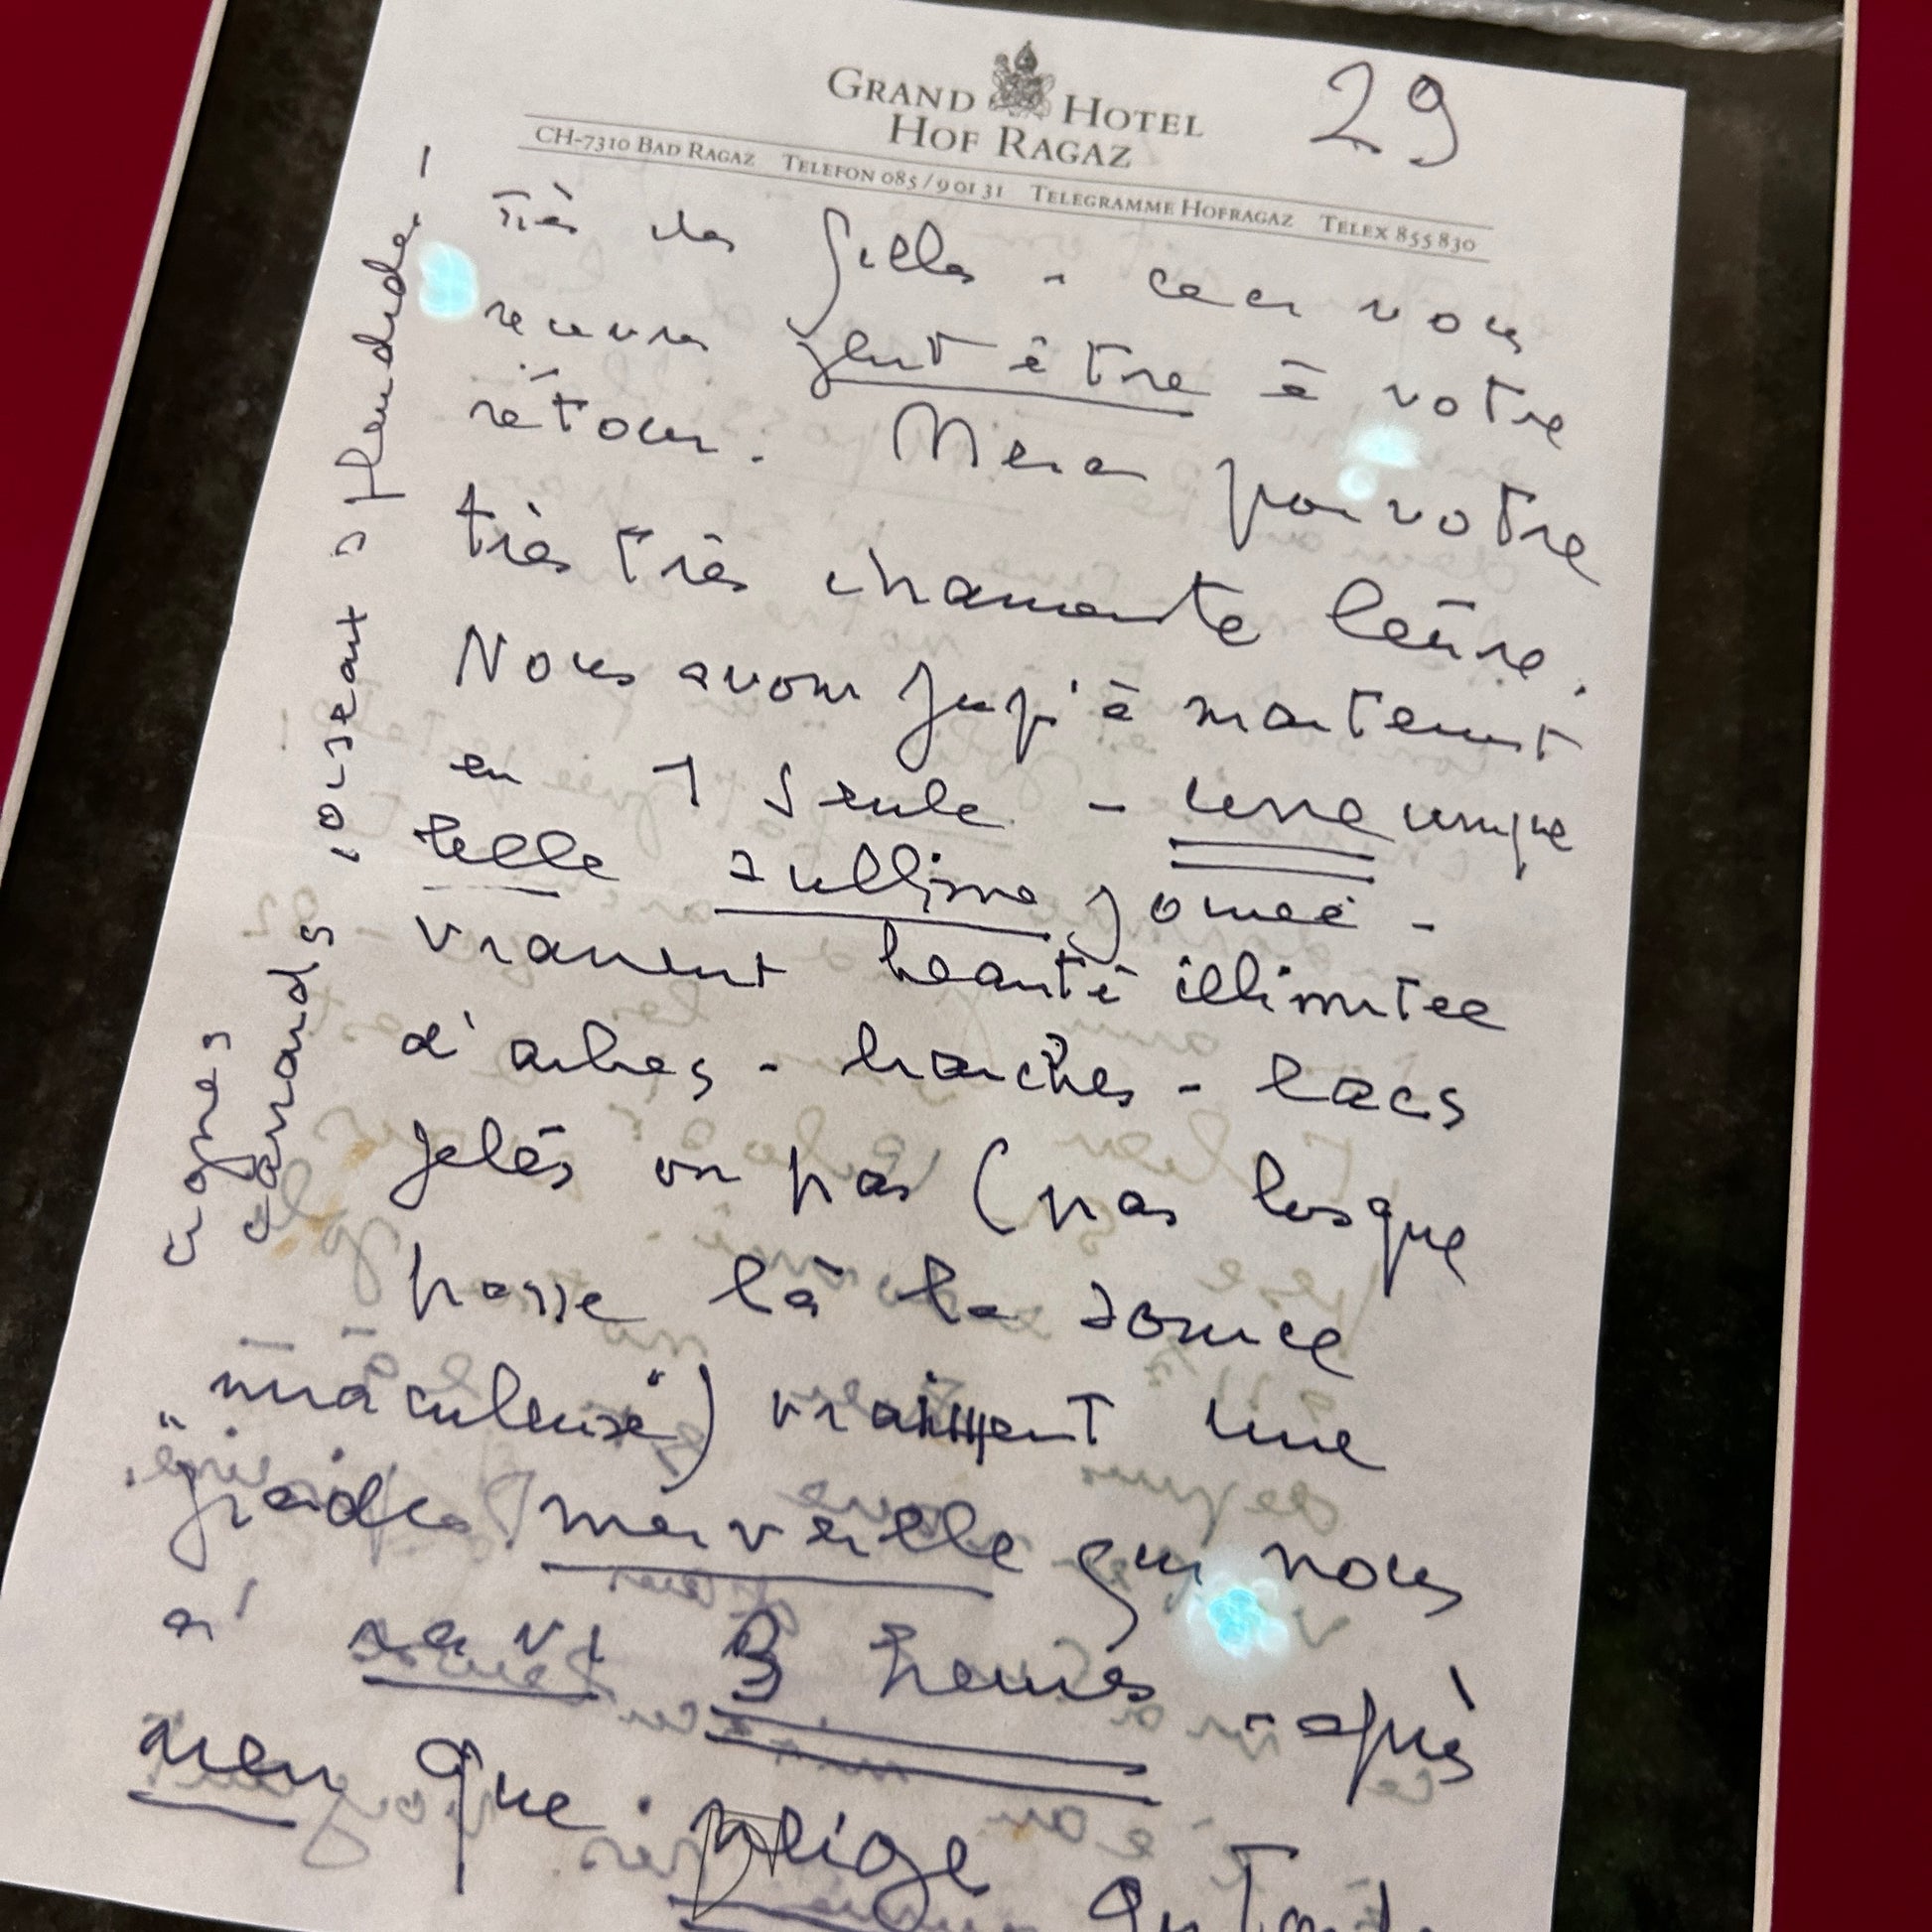 GRAND HOTEL
HOF RAGAZ
29
CH-7310 BAD RAGAZ TELEFON 085/9 01 31 TELEGRAMME HOFRAGAZ TELEX 855 830
Très cher Gilles - ceci vous
peut être à votre
retour. Merci pour votre
très très charmante lettre.
Nous avons jusqu'à maintenant
eu 1 seule - une unique
telle sublime journée -
vraiment beauté illimitée
d'arbres - branches - lacs
gelés ou pas (pas lorsque
passe là la source
"miraculeuse") vraiment une
grande merveille qui nous
a ravi 3 heures - après
rien que neige
cygnes
canards
oiseaux splendides -